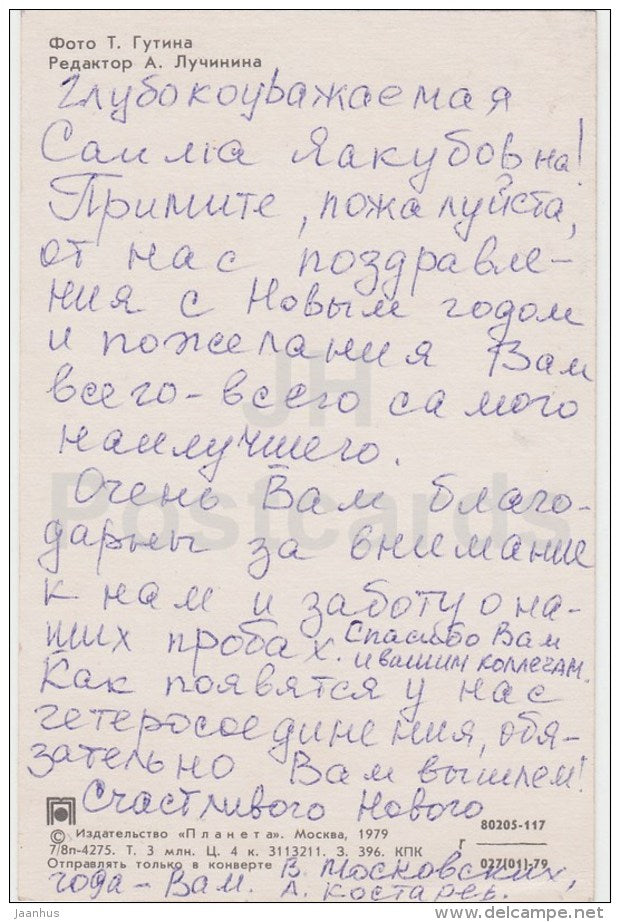 Фото Т. Гутина
Редактор А. Лучинина
Глубокоуважаемая
Саима Якубовна!
Примите, пожалуйста,
от нас поздравле-
ния с Новым годом
и пожелания Вам
всего-всего самого
наилучшего.
Очень Вам благо-
дарны за внимание
к нам и заботу о на-
ших пробах. Спасибо Вам
и вашим коллегам.
Как появятся у нас
гетеросоединения, обя-
зательно Вам вышлем!
Счастливого Нового
© Издательство «Планета». Москва, 1979
7/8п-4275. Т. 3 млн. Ц. 4 к. 3113211. З. 396. КПК
Отправлять только в конверте
г 80205-117
027(01)-79
года – Вам. В. Московских,
А. Костарев.
JH
Postcards
jaanhus
©delcampe.net